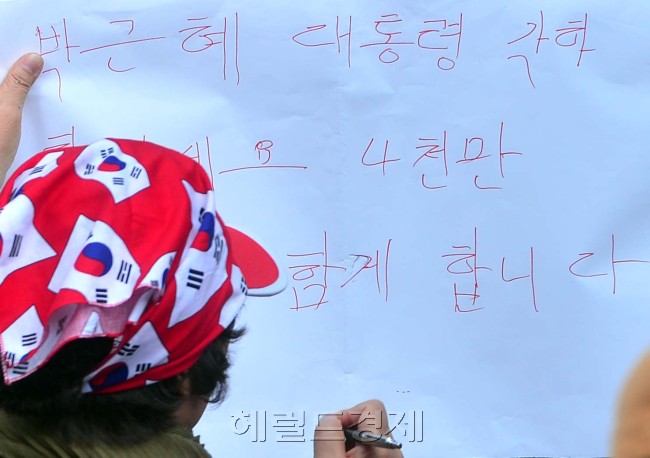 박근혜 대통령 각하
4천만
함게 합니다
헤럴드경제